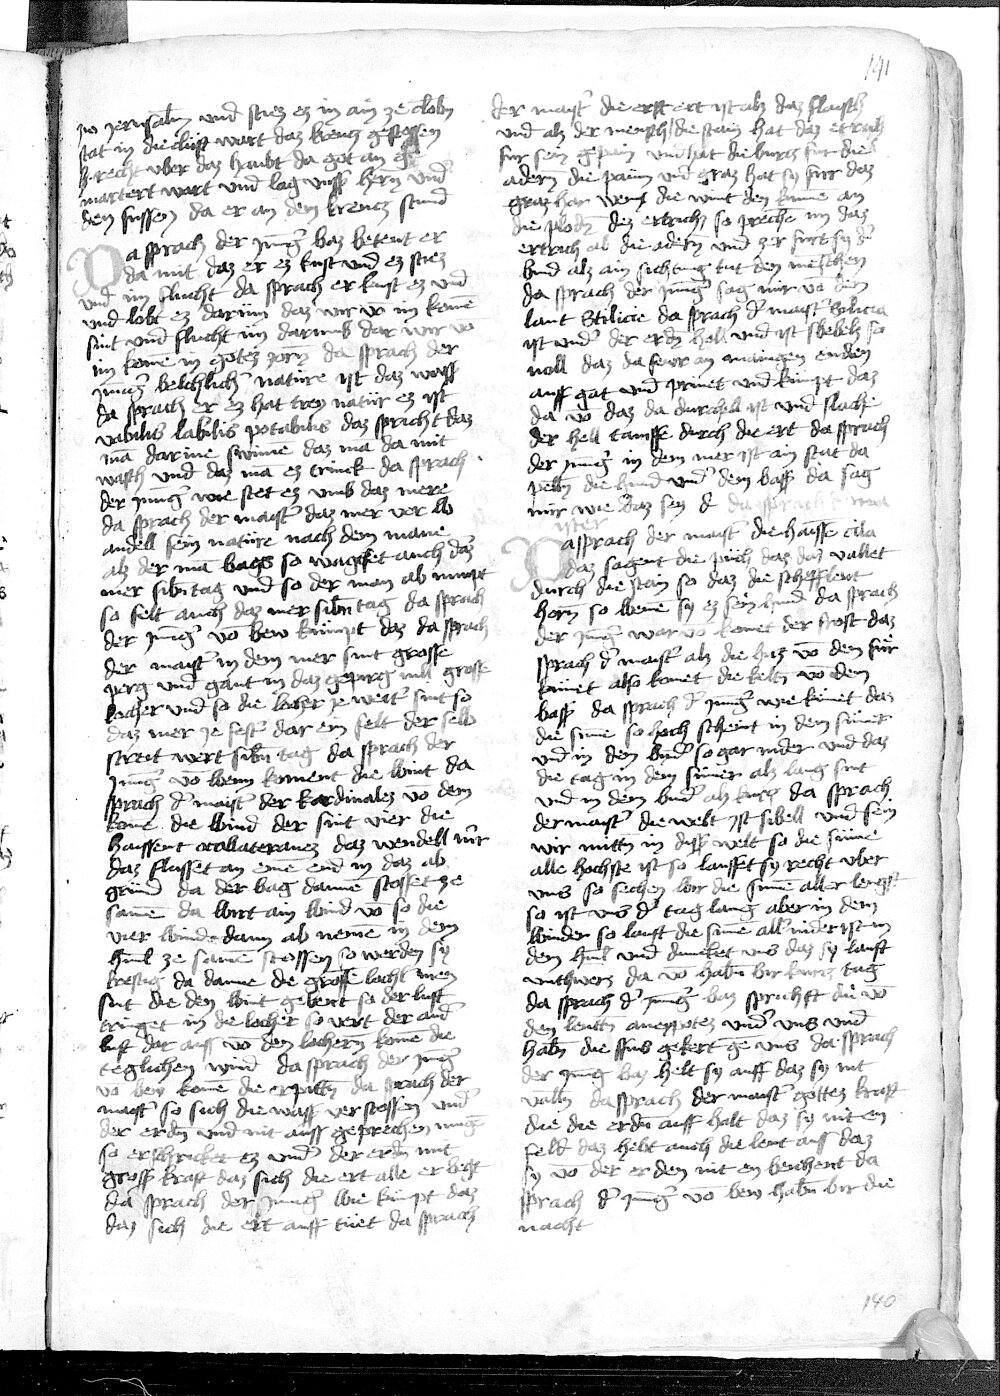 141
zw Jerusalem und stiez ez in ain ze cloben
stat in die clufft wart daz kreucz gestossen
h recht uber daz haubt da got an ge
martert wart und lag unsserm hern under
den fussen da er an dem kreucz stund
Da sprach der junger baz betent er
da mit daz er ez kust und ez stiez
und im flucht da sprach er kust ez und
und lobt ez darum daz wir von im komen
sint und flucht im darumb dar wir von
im komen in gotez zorn da sprach der
junger belchlicher nature ist daz wasser
da sprach er ez hat trey natur ez ist
vabilis labilis potabilis daz spricht daz
man dar inne swimme daz man da mit
wasch und daz man ez trinck da sprach
der junger wie stet ez umb daz mere
da sprach der maister daz mer ver w
andelt sein nature nach dem mane
alz der man wagst so wagset auch daz
mer siben tag und so der man ab nimpt
so felt auch daz mer siben tag da sprach
der junger von bew kumpt daz da sprach
der maister in dem mer sint grosse
perg und gant in daz gepirg vill grosse
locher und so die locher je weiter sint so
daz mer je fester dar ein felt der selb
streit wert siben tag da sprach der
junger von wem koment die wint da
sprach der maister der kardinalez von dem
kome die wind der sint vier die
haissent collateranez daz wendell mer
daz flusset an eine end in daz ab
grund da der wag danne stosset ze
same da wirt ain wind von so die
vier wind dann ab nemen in dem
himel ze samen stossen so werden sy
krefftig da danne die grosse locher inen
sint die den wint gebent so der luft
tringet in die locher so vert der ander
luft dar auss von den lochern komen die
teglichen wind da sprach der junger
von bew komen die erpittem da sprach der
maister so sich die wasser verstossen under
der erden und nit auss geprechen mugen
so erschricket ez under der erden mit
grosser kraft daz sich die ert alle erwegt
da sprach der junger wie kumpt daz
daz sich die ert auff tuet da sprach
der maister die erst ert ist alz daz flaisch
und alz der mensch die stain hat daz ertrich
fur sein gepain und hat die burcz fur die
adern die paum und graz hat sy fur daz
graz har wenn die wint den kumen an
die plodem dez ertrich so preche im daz
ertrich ab die adern und zer furt sy der
wind alz ain siechtung tut den menschen
da sprach der junger sag mir von dem
lant Stilicie da sprach der maister Stilicia
ist under der erden holl und ist swebels so
voll daz da fewr an manigen enden
auff gat und prinet und kumpt daz
da von daz da durchell ist und flache
der hell tampffe durch die ert da sprach
der junger in dem mer ist ain stat da
pellen die hund under dem wasser da sag
mir wie daz sey
Da sprach der maister die haisse cila
daz sagent die puch daz daz vallet
durch die stain so daz die schefflewt
horn so wene sy ez sein hund da sprach
der junger war von komet der frost daz
sprach der maister alz die hicz von dem fur
kumet also komet die kelten von dem
wasser da sprach der junger wie kumet daz
die sunne so hoch scheint in dem sumer
und in dem winder so gar nider und daz
die tag in dem sumer alz lang sint
und in dem winder alz kurcz da sprach
der maister die welt ist sibell und sein
wir mitten in diser welt so die sunne
alle hochste ist so lauffet sy recht uber
uns so sechen wir die sunne aller lengst
so ist uns der tag lang aber in dem
winder so lauft die sunne aller nider ist in
dem himel und duncket uns daz sy lauft
unthwerz da von haben wir kurcz tag
da sprach der junger baz sprichst du von
den leuten antypotez under uns und
haben die fuss gekert gen uns da sprach
der junger baz helt sy auff daz sy nit
vallen da sprach der maister gottez kraft
die die erden auff halt daz sy nit en
felt daz hebt auch die leut auf daz
sy von der erden nit en weichent da
sprach der junger von bew haben wir die
nacht
140